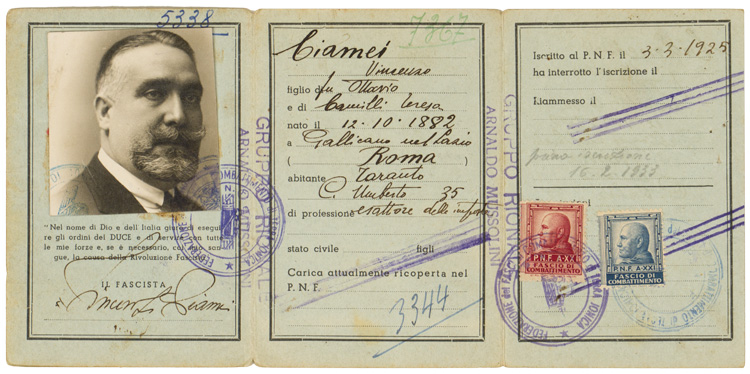 5338
"Nel nome di Dio e dell'Italia giuro di esegui-
re gli ordini del DUCE e di servire con tutte
le mie forze e, se è necessario, col mio san-
gue, la causa della Rivoluzione Fascista".
IL FASCISTA
GRUPPO RIONALE
ARNALDO MUSSOLINI
7367
Ciamei
Vincenzo
figlio di fu Ottavio
e di Camilli Teresa
nato il 12-10-1882
a Gallicano nel Lazio
( Roma )
abitante Taranto
C. Umberto 35
di professione esattore delle imposte
stato civile figli
Carica attualmente ricoperta nel
P.N.F.
3344
GRUPPO RIONALE
ARNALDO MUSSOLINI
Iscritto al P.N.F. il 3-3-1925
ha interrotto l'iscrizione il
Riammesso il
16.2.1933
P.N.F. A.XX
FASCIO DI
COMBATTIMENTO
P.N.F. A.XXI
FASCIO DI
COMBATTIMENTO